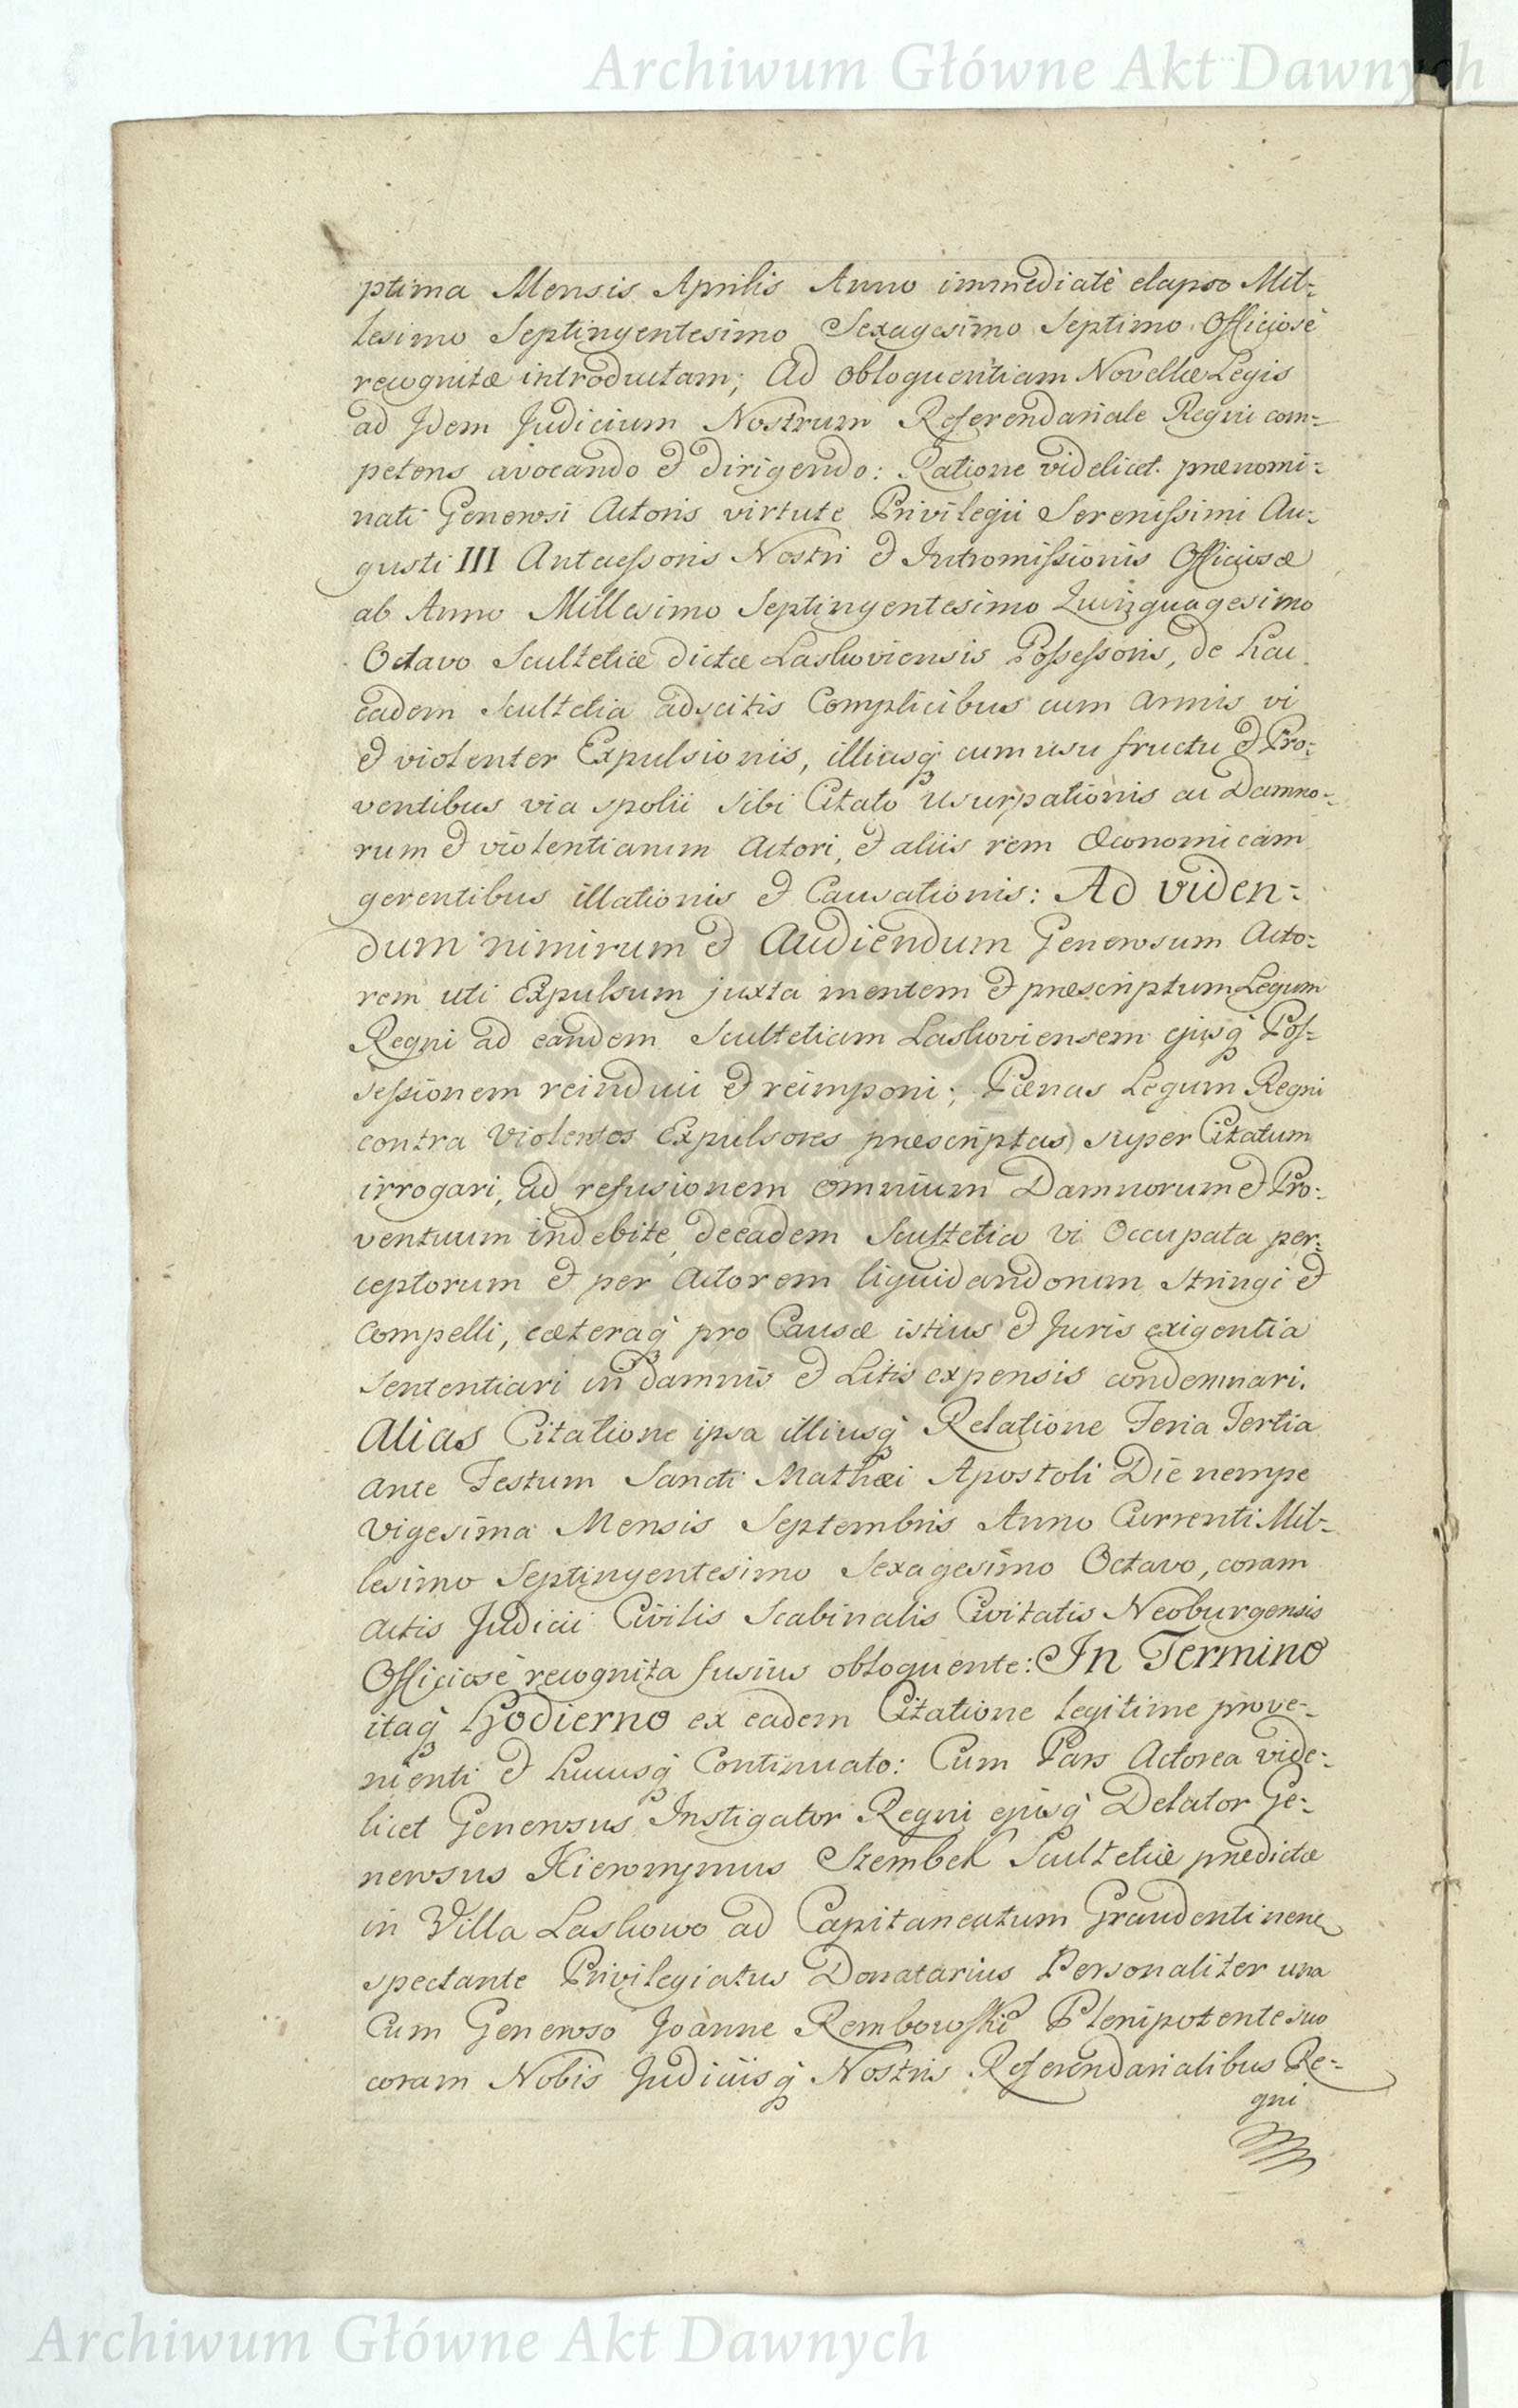 Archiwum Główne Akt Dawnych
ptima Mensis Aprilis Anno immediatè elapso Mil-
lesimo Septingentesimo Sexagesimo Septimo Officiosè
recognitæ introductam; Ad obloquentiam Novellæ Legis
ad Idem Judicium Nostrum Referendariale Regni com-
petens avocando et dirigendo: Ratione videlicet prænomi-
nati Generosi Actoris virtute Privilegii Serenissimi Au-
gusti III Antecessoris Nostri et Intromissionis Officiosæ
ab Anno Millesimo Septingentesimo Quinquagesimo
Octavo Scultetiæ dictæ Laskoviensis Possessoris, de hac
eadem Scultetia adscitis Complicibus cum armis vi
et violenter Expulsionis, illiusq́ cum usu fructu et Pro-
ventibus via spolii sibi Citato usurpationis ac Damno-
rum et violentiarum Actori, et aliis rem Œconomicam
gerentibus illationis et Causationis: Ad Viden-
dum nimirum et Audiendum Generosum Acto-
rem uti Expulsum juxta mentem et præscriptum Legum
Regni ad eandem Scultetiam Laskoviensem ejusq́ Pos-
sessionem reinduci et reimponi; Pænas Legum Regni
contra Violentos Expulsores præscriptas super Citatum
irrogari, ad refusionem omnium Damnorum et Pro-
ventuum indebite de eadem Scultetia vi Occupata per-
ceptorum et per Actorem liquidandorum stringi et
Compelli, cæteraq́ pro Causæ istius et Juris exigentia
Sententiari in damnis et Litis expensis condemnari.
Alias Citatione ipsa illiusq́ Relatione Feria Tertia
ante Festum Sancti Mathæi Apostoli Die nempe
Vigesima Mensis Septembris Anno Currenti Mil-
lesimo Septingentesimo Sexagesimo Octavo, coram
Actis Judicii Civilis Scabinalis Civitatis Neoburgensis
Officiosè recognita fusius obloquente: In Termino
itaq́ Hodierno ex eadem Citatione legitime prove-
nienti et hucusq́ Continuato: Cum Pars Actorea vide-
licet Generosus Instigator Regni ejusq́ Delator Ge-
nerosus Hieronymus Szembek Scultetiæ prædictæ
in Villa Laskowo ad Capitaneatum Graudentinens
spectante Privilegiatus Donatarius Personaliter una
Cum Generoso Joanne Rembowski Plenipotente suo
coram Nobis Judiciisq́ Nostris Referendarialibus Re-
gni
Archiwum Główne Akt Dawnych